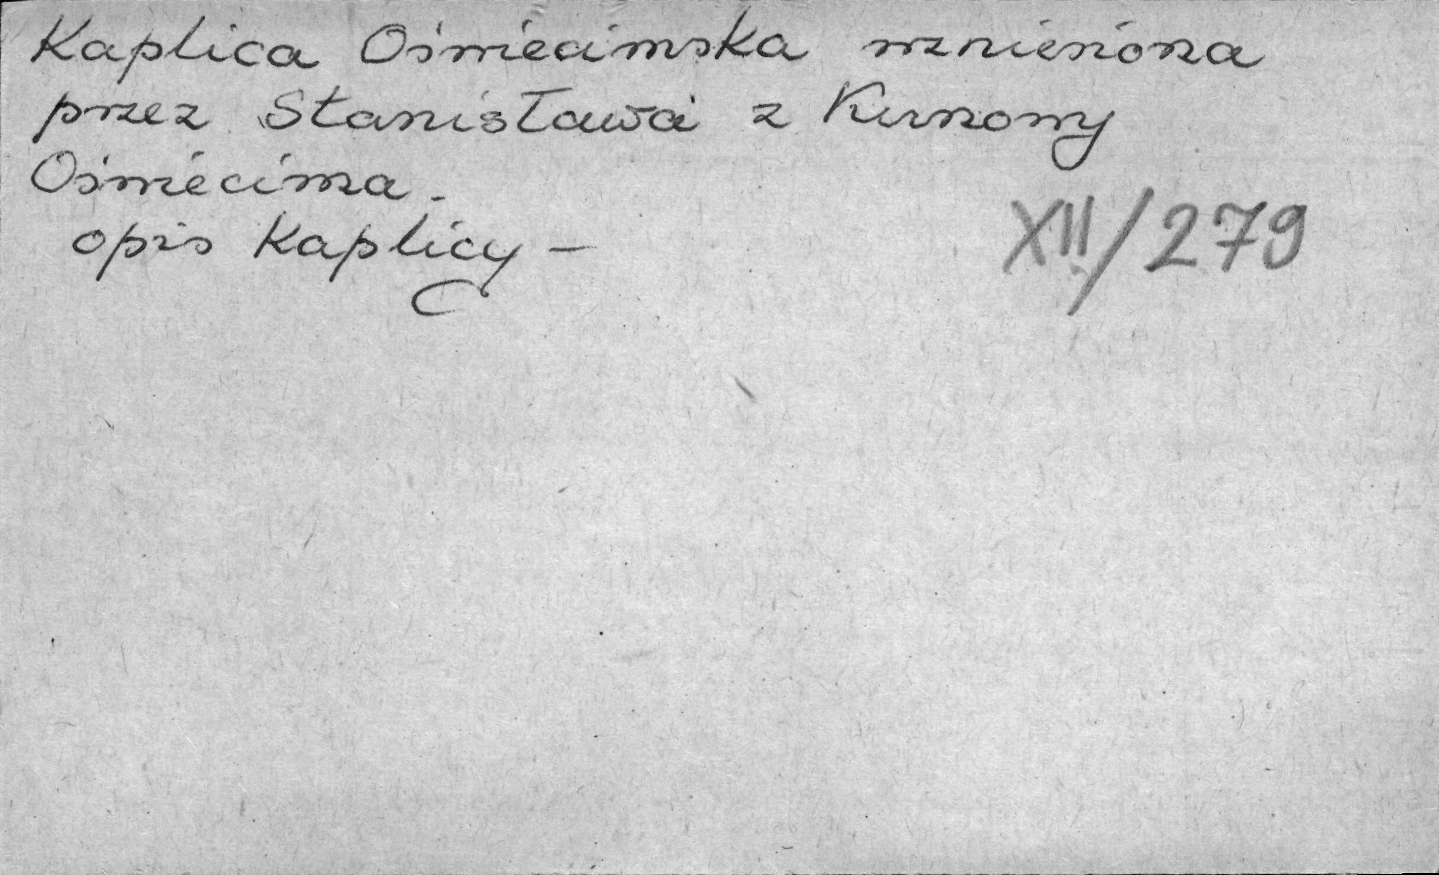 Kaplica Oświecimska wzniesiona
przez Stanisława z Kunowy
Oświecima.
opis Kaplicy –
XII/279